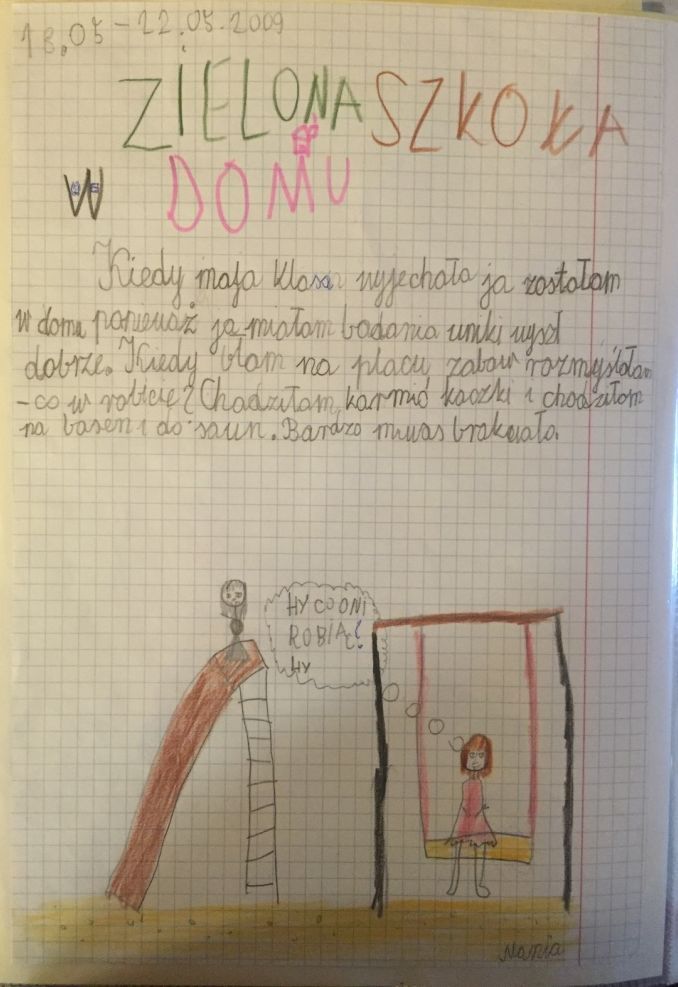 18.05-22.05.2009
ZIELONA SZKOŁA
W DOMU
Kiedy moja klasa wyjechała ja zostałam
w domu ponieważ ja miałam badania wniki wyszł
dobrze. Kiedy błam na placu zabaw rozmyślałam
-co w robicie? Chadziłam karmić kaczki i chodziłam
na basen i do saun. Bardzo mi was brakowało.
HY CO ONI
ROBIĄ?
HY